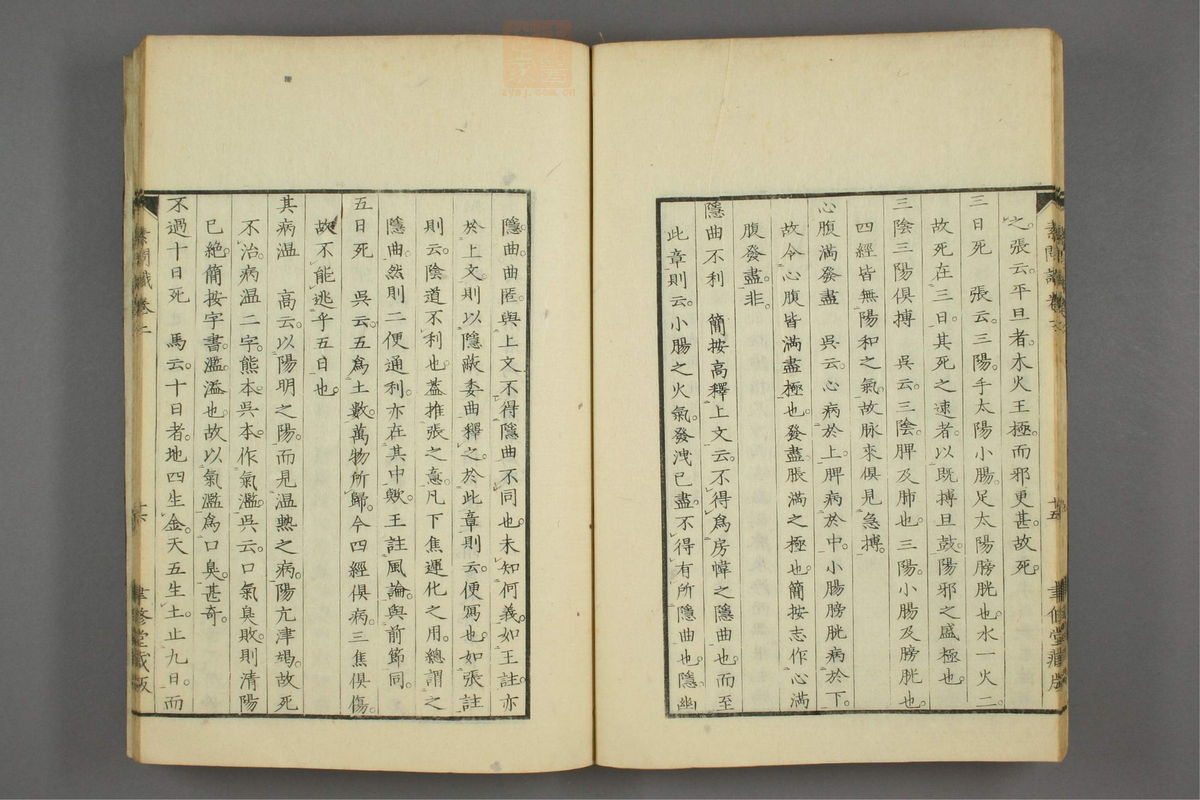 之張云平旦者木火王極而邪更甚故死
三日死　張云三陽手太陽小腸足太陽膀胱也水一火二
故死在三日其死之速者以既搏且鼓陽邪之盛極也
三陰三陽俱搏　吳云三陰脾及肺也三陽小腸及膀胱也
四經皆無陽和之氣故脉來俱見急搏
心腹滿發盡　吳云心病於上脾病於中小腸膀胱病於下
故令心腹皆滿盡極也發盡脹滿之極也簡按志作心滿
腹發盡非
隱曲不利　簡按高釋上文云不得爲房幃之隱曲也而至
此章則云小腸之火氣發洩已盡不得有所隱曲也隱幽
素問識卷二
十五
聿修堂藏版
隱曲曲匿與上文不得隱曲不同也未知何義如王註亦
於上文則以隱蔽委曲釋之於此章則云便寫也如張註
則云陰道不利也蓋推張之意凡下焦運化之用總謂之
隱曲然則二便通利亦在其中歟王註風論與前節同
五日死　吳云五爲土數萬物所歸今四經俱病三焦俱傷
故不能逃乎五日也
其病温　高云以陽明之陽而見温熱之病陽亢津竭故死
不治病温二字熊本吳本作氣濫吳云口氣臭敗則清陽
已絶簡按字書濫溢也故以氣濫爲口臭甚奇
不過十日死　馬云十日者地四生金天五生土止九日而
素問識卷二
十六
聿修堂藏版